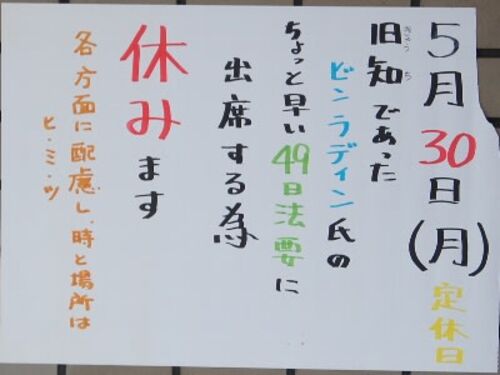 5月30日(月)定休日
旧知であった
きゅうち
ビンラディン氏の
ちょっと早い49日法要に
出席する為
休みます
各方面に配慮し、時と場所は
ヒ・ミ・ツ